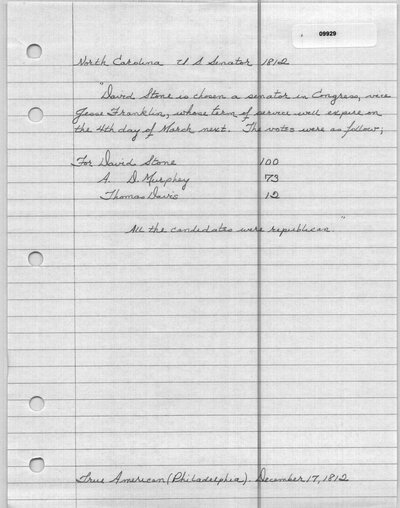 09929
North Carolina U S Senator 1812
"David Stone is chosen a senator in Congress, vice
Jesse Franklin, whose term of service will expire on
the 4th day of March next. The votes were as follow;
For David Stone 100
A. D. Murphey 73
Thomas Davis 12
All the candidates were republican."
True American (Philadelphia). December 17, 1812